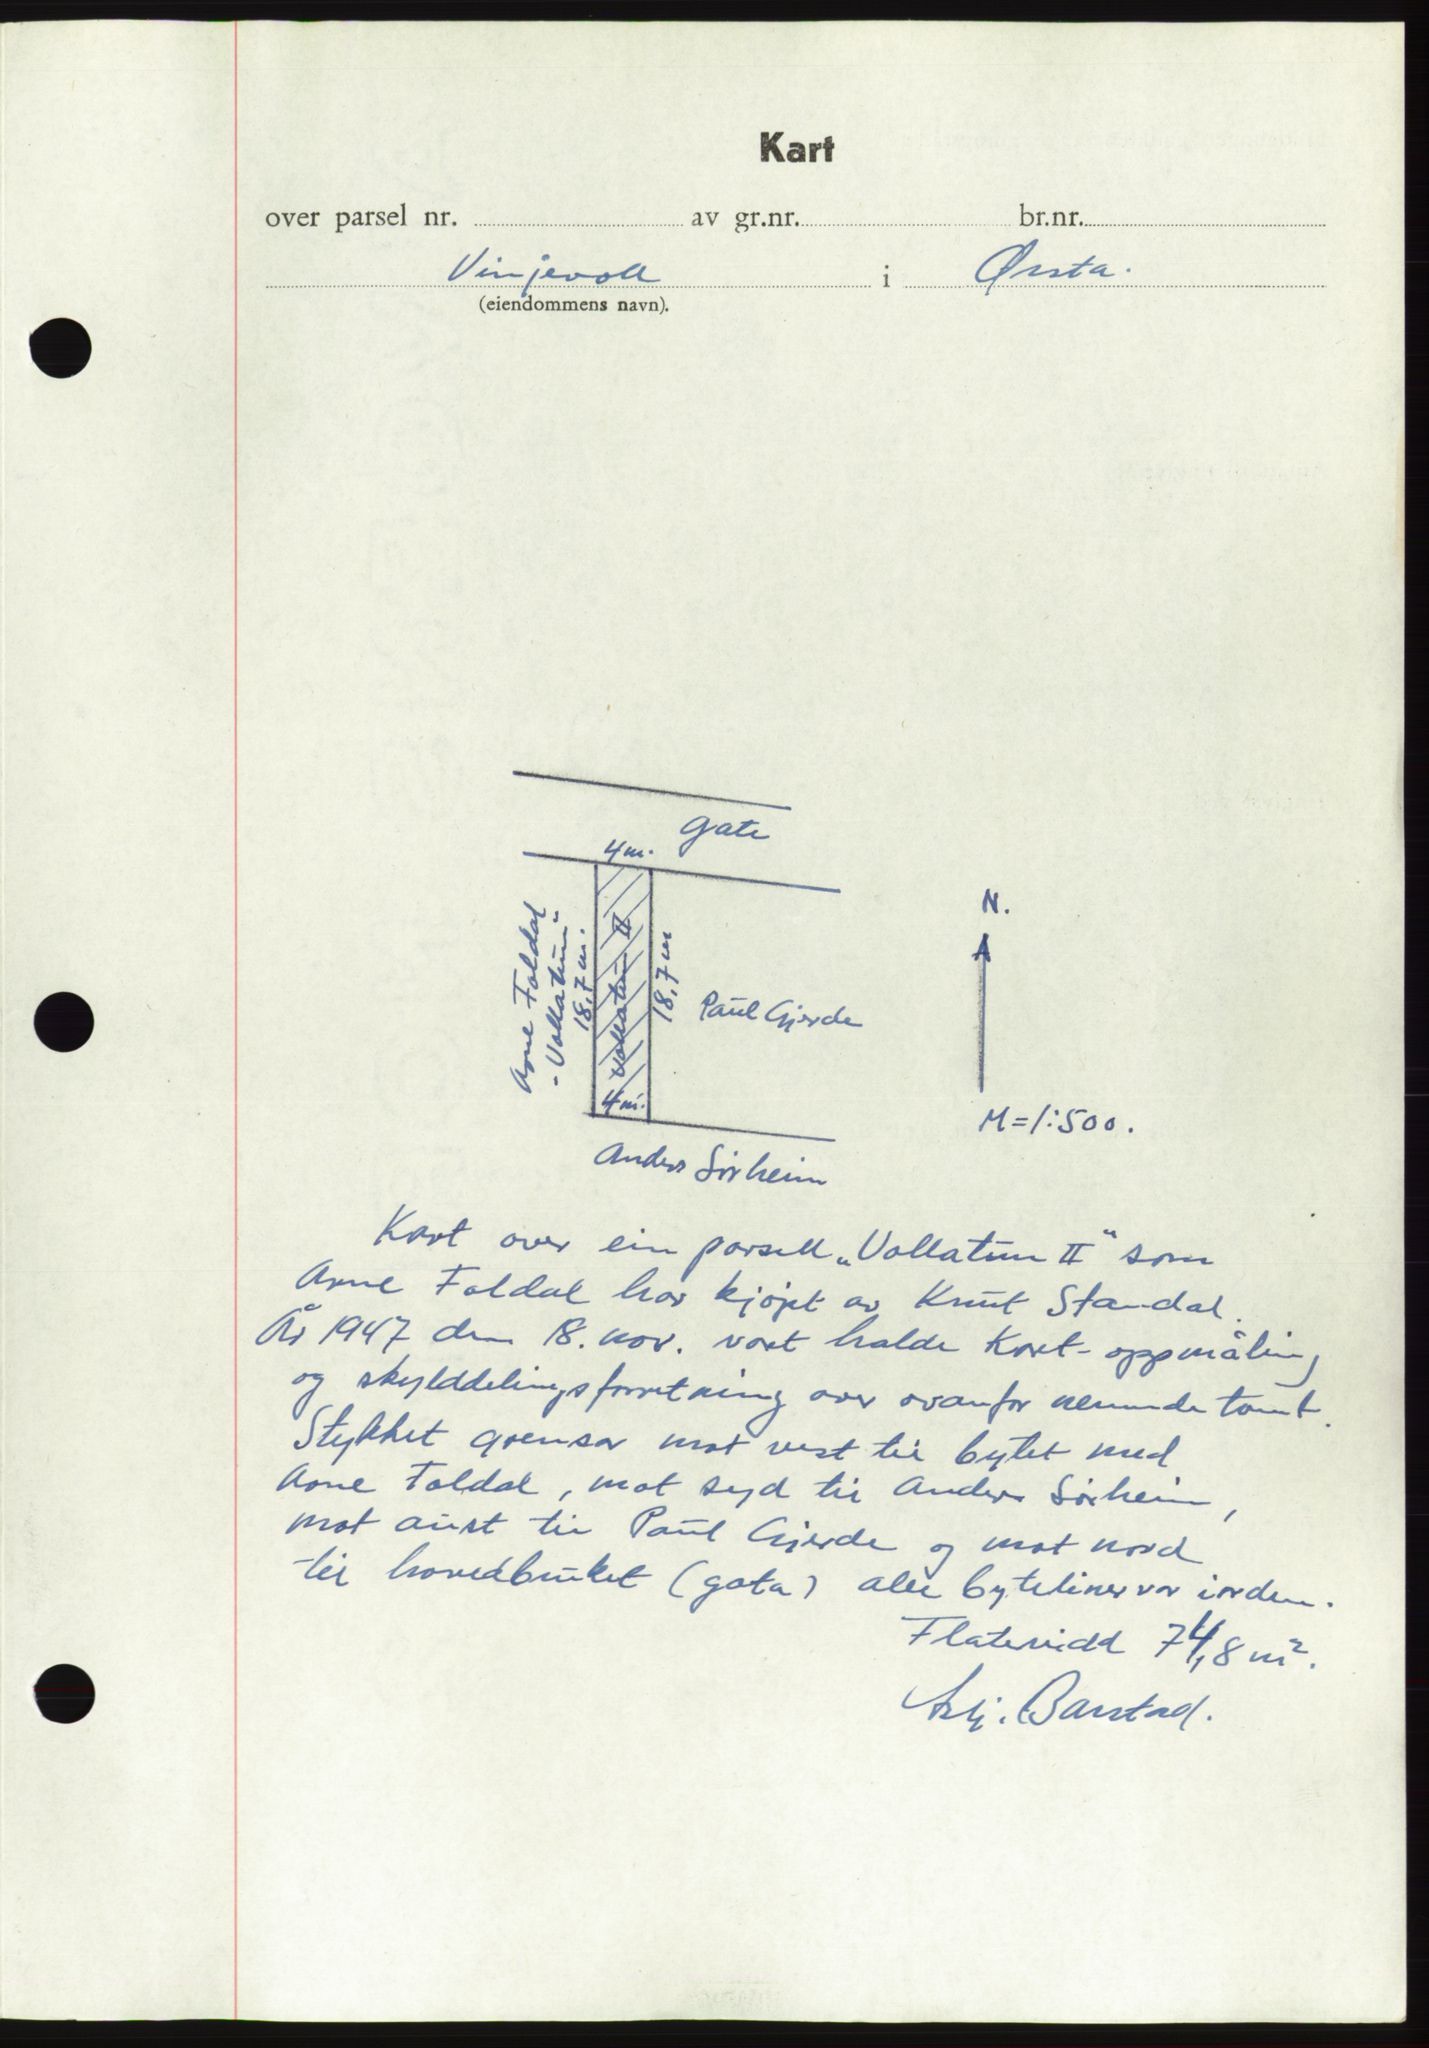 Kart
over parsel nr. av gr.nr. br.nr.
Vinjevoll i Ørsta.
(eiendommens navn).
gate
4 m.
N.
Arne Foldal
"Vollatun"
18,7 m.
Vollatun II
18,7 m
Paul Gjerde
4 m.
M = 1:500.
Anders Sörheim
Kart over ein parsell „Vollatun II“ som
Arne Foldal har kjöpt av Knut Standal.
År 1947 den 18. nov. vart halde Kart-oppmåling
og skylddelingsforretning over ovanfor nemnde tomt.
Stykket grensar mot vest til bytet med
Arne Foldal, mot syd til Anders Sörheim,
mot aust til Paul Gjerde og mot nord
til hovedbruket (gata) alle byteliner var i orden.
Flatevidd 74,8 m².
Barstad.